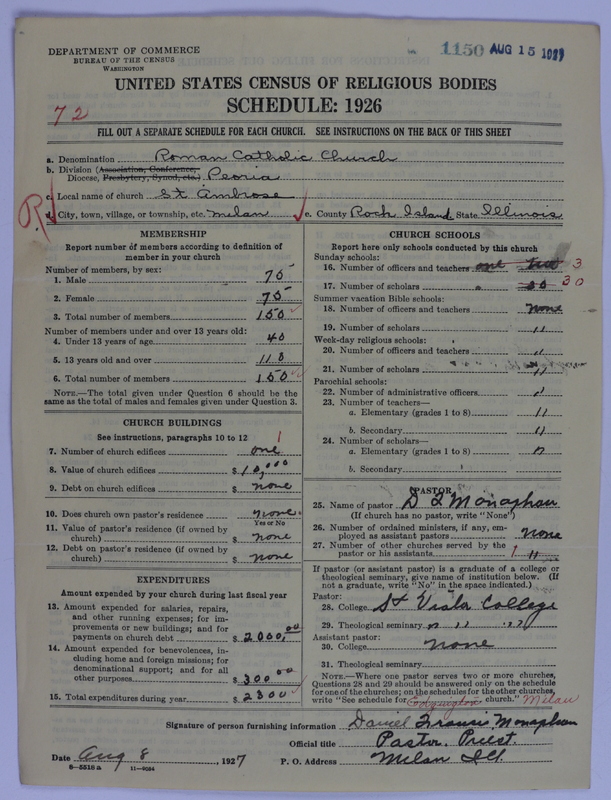 DEPARTMENT OF COMMERCE
BUREAU OF THE CENSUS
WASHINGTON
1150 AUG 15 1927
UNITED STATES CENSUS OF RELIGIOUS BODIES
SCHEDULE: 1926
72
FILL OUT A SEPARATE SCHEDULE FOR EACH CHURCH. SEE INSTRUCTIONS ON THE BACK OF THIS SHEET
a. Denomination Roman Catholic Church
b. Division (Association, Conference,
Diocese, Presbytery, Synod, etc.) Peoria
c. Local name of church St Ambrose
d. City, town, village, or township, etc. Milan e. County Rock Island State Illinois
R
MEMBERSHIP
Report number of members according to definition of
member in your church
Number of members, by sex:
1. Male 75
2. Female 75
3. Total number of members 150
Number of members under and over 13 years old:
4. Under 13 years of age 40
5. 13 years old and over 110
6. Total number of members 150
NOTE.—The total given under Question 6 should be the
same as the total of males and females given under Question 3.
CHURCH BUILDINGS
See instructions, paragraphs 10 to 12
7. Number of church edifices one 1
8. Value of church edifices $ 10,000
9. Debt on church edifices $ none
10. Does church own pastor's residence none.
Yes or No
11. Value of pastor's residence (if owned by
church) $ none
12. Debt on pastor's residence (if owned by
church) $ none
EXPENDITURES
Amount expended by your church during last fiscal year
13. Amount expended for salaries, repairs,
and other running expenses; for im-
provements or new buildings; and for
payments on church debt $ 2000.00
14. Amount expended for benevolences, in-
cluding home and foreign missions; for
denominational support; and for all
other purposes $ 300.00
15. Total expenditures during year $ 2300
CHURCH SCHOOLS
Report here only schools conducted by this church
Sunday schools:
16. Number of officers and teachers one two 3
17. Number of scholars 30 30
Summer vacation Bible schools:
18. Number of officers and teachers none
19. Number of scholars "
Week-day religious schools:
20. Number of officers and teachers "
21. Number of scholars "
Parochial schools:
22. Number of administrative officers "
23. Number of teachers—
a. Elementary (grades 1 to 8) "
b. Secondary "
24. Number of scholars—
a. Elementary (grades 1 to 8) "
b. Secondary
PASTOR
25. Name of pastor D F Monaghan
(If church has no pastor, write "None")
26. Number of ordained ministers, if any, em-
ployed as assistant pastors none
27. Number of other churches served by the
pastor or his assistants 1 "
If pastor (or assistant pastor) is a graduate of a college or
theological seminary, give name of institution below. (If
not a graduate, write "No" in the space indicated.)
Pastor:
28. College St Viator College
29. Theological seminary " " "
Assistant pastor:
30. College none
31. Theological seminary
NOTE.—Where one pastor serves two or more churches,
Questions 28 and 29 should be answered only on the schedule
for one of the churches; on the schedules for the other churches,
write "See schedule for Edgington church." Milan
Signature of person furnishing information Daniel Francis Monaghan
Official title Pastor, Priest.
Date Aug 8, 1927 P. O. Address Milan Ill.
8—5518 a 11—9094